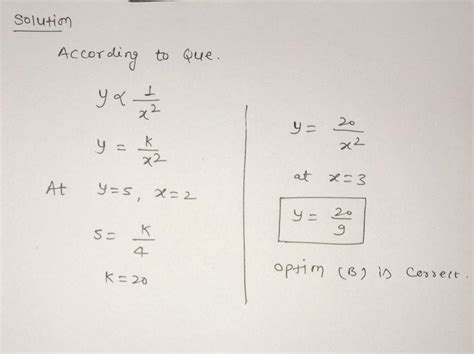 Solution
According to Que.
y ∝ 1/x²
y = k/x²
At y=5, x=2
5 = K/4
K=20
y = 20/x²
at x=3
y = 20/9
Optim (B) is correct.